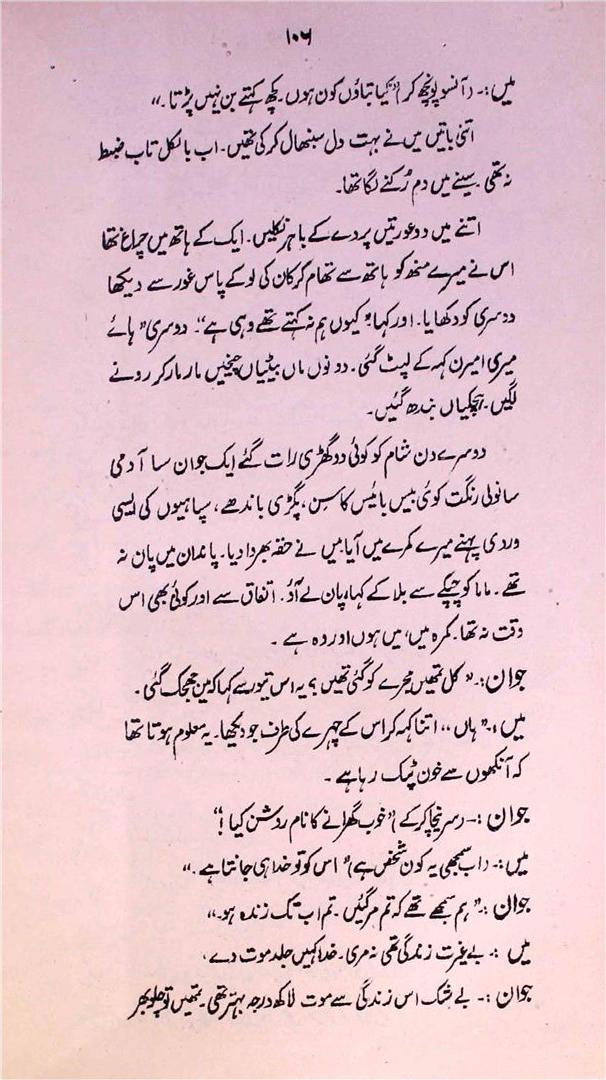 ۱۰۶
میں :۔ (آنسو پونچھ کر) "کیا بتاؤں کون ہوں۔ کچھ کہتے بن نہیں پڑتا۔"
اتنی باتیں میں نے بہت دل سنبھال کر کی تھیں۔ اب بالکل تاب ضبط
نہ تھی۔ سینے میں دم رُکنے لگا تھا۔
اتنے میں دو عورتیں پردے کے باہر نکلیں۔ ایک کے ہاتھ میں چراغ تھا
اس نے میرے منھ کو ہاتھ سے تھام کر کان کی لو کے پاس غور سے دیکھا
دوسری کو دکھایا۔ اور کہا "کیوں ہم نہ کہتے تھے وہی ہے"۔ دوسری "ہائے
میری امیرن کہہ کے لپٹ گئی۔ دونوں ماں بیٹیاں چیخیں مار مار کر رونے
لگیں۔ ہچکیاں بندھ گئیں۔
دوسرے دن شام کو کوئی دو گھڑی رات گئے ایک جوان سا آدمی
سانولی رنگت کوئی بیس بائیس کا سِن، پگڑی باندھے، سپاہیوں کی ایسی
وردی پہنے میرے کمرے میں آیا۔ میں نے حقہ بھروا دیا۔ پاندان میں پان نہ
تھے۔ ماما کو چپکے سے بلا کے کہا، پان لے آؤ۔ اتفاق سے اور کوئی بھی اس
وقت نہ تھا۔ کمرہ میں، میں ہوں اور وہ ہے ۔
جوان :۔ "کل تمھیں مجرے کو گئی تھیں ؟ یہ اس تیور سے کہا کہ میں جھجک گئی۔
میں :۔ "ہاں" اتنا کہہ کر اس کے چہرے کی طرف جو دیکھا۔ یہ معلوم ہوتا تھا
کہ آنکھوں سے خون ٹپک رہا ہے ۔
جوان :۔ (سر نیچا کر کے) "خوب گھرانے کا نام روشن کیا !"
میں :۔ (اب سمجھی یہ کون شخص ہے) "اس کو تو خدا ہی جانتا ہے۔"
جوان :۔ "ہم سمجھے تھے کہ تم مر گئیں۔ تم اب تک زندہ ہو۔"
میں :۔ بے غیرت زندگی تھی نہ مری۔ خدا کہیں جلد موت دے،
جوان :۔ بے شک اس زندگی سے موت لاکھ درجہ بہتر تھی۔ تمھیں تو چلو بھر